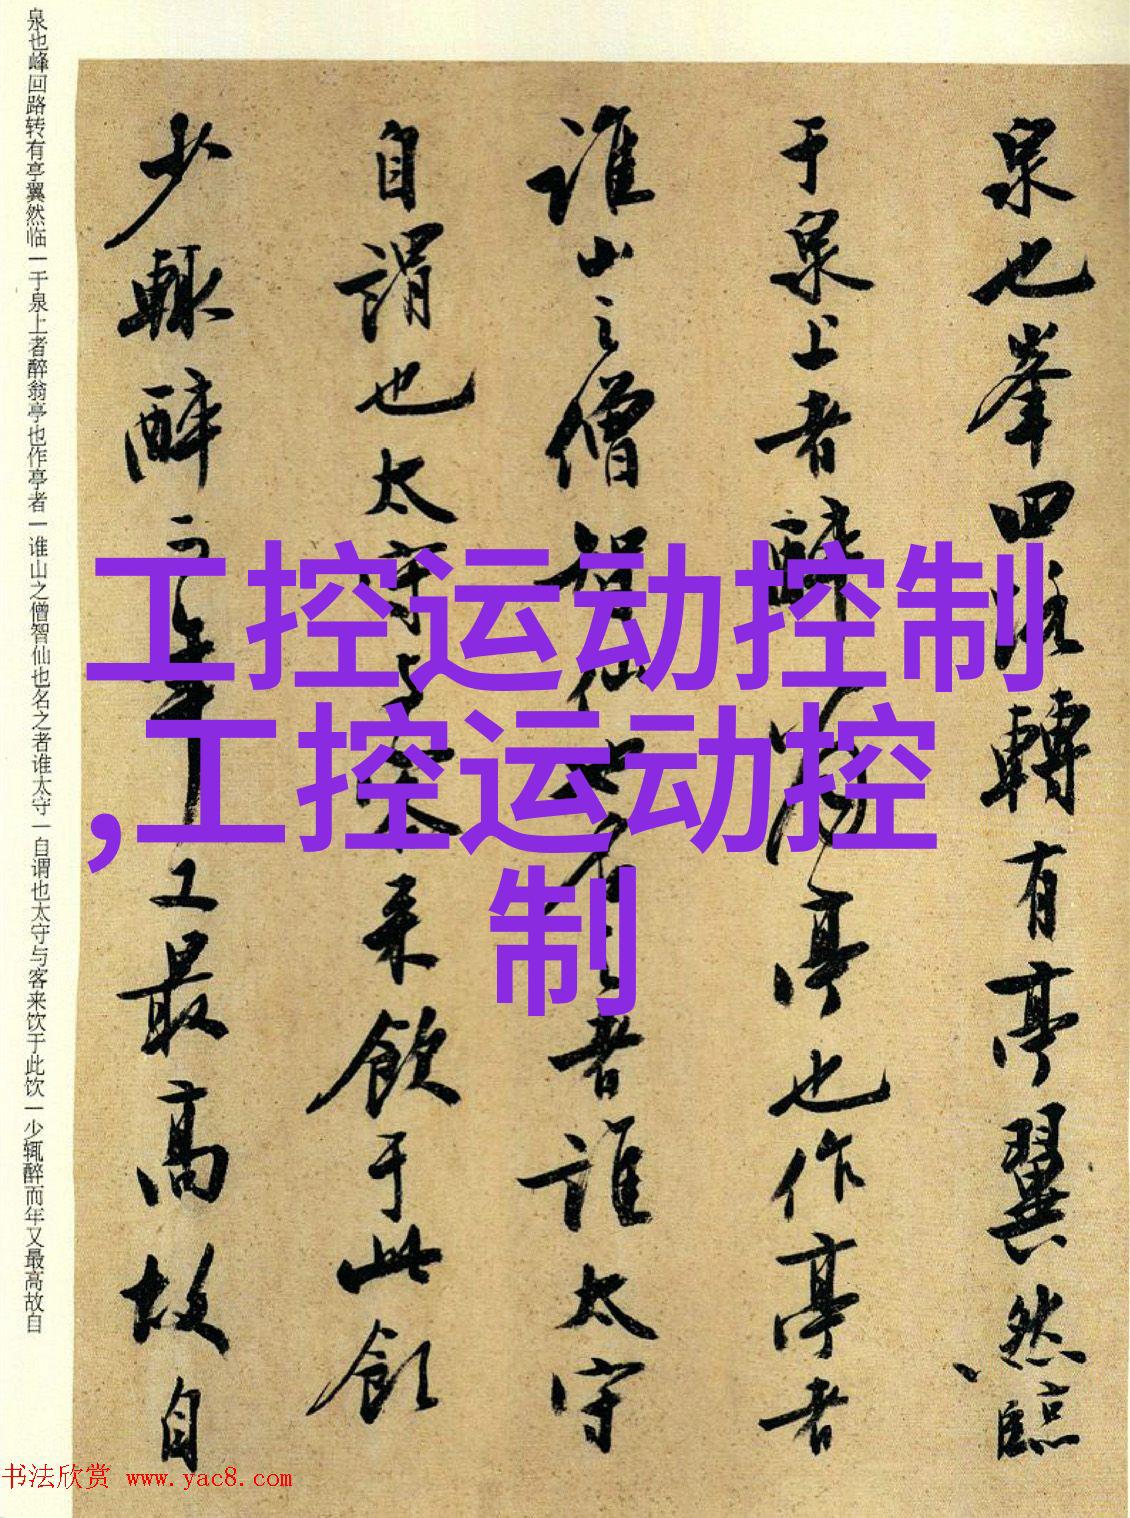 泉也峰回路转有亭翼然临一于泉上者醉翁亭也作亭者一谁山之僧智仙也名之者谁太守一自谓也太守与客来饮于此饮一少辄醉而年又最高故自
泉也峯回路轉有亭翼然臨
于泉上者醉翁亭也作亭者
誰山之僧智仙也名之者誰太守
自謂也太守与客来飲于此飲
少輒醉而年又最高故自
工控运动控制
,工控运动控
制
书法欣赏 www.yac8.com